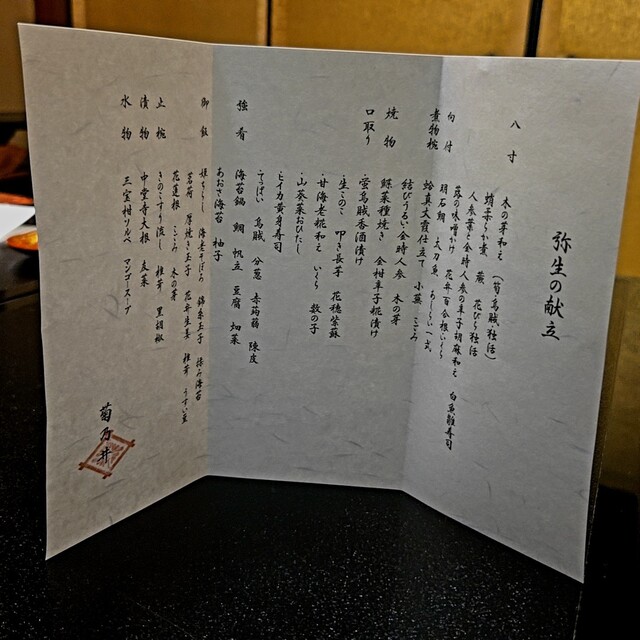 弥生の献立
八寸
木の芽和え（筍 烏賊 独活）
蛸柔らか煮 蕨 花びら独活
人参葉と金時人参の辛子胡麻和え 白魚雛寿司
蕗の味噌かけ 花弁百合根いくら
向付 明石鯛 太刀魚 あしらい一式
煮物椀 蛤真丈霞仕立て 小蕪 こごみ
結びうるい 金時人参 木の芽
焼物 鰆菜種焼き 金柑辛子糀漬け
口取り ・蛍烏賊香酒漬け
・生このこ 叩き長芋 花穂紫蘇
・甘海老糀和え いくら 数の子
・山葵菜おひたし
・ヒイカ黄身寿司
・てっぱい 烏賊 分葱 赤蒟蒻 陳皮
強肴 海苔鍋 鯛 帆立 豆腐 知菜
あおさ海苔 柚子
御飯 海老そぼろ 錦糸玉子 揉み海苔
厚焼き玉子 花弁生姜 椎茸 うすい豆
花蓮根 こごみ 木の芽
止椀 きのこすり流し 椎茸 黒胡椒
漬物 中堂寺大根
水物 三宝柑ソルベ マンゴースープ
菊乃井